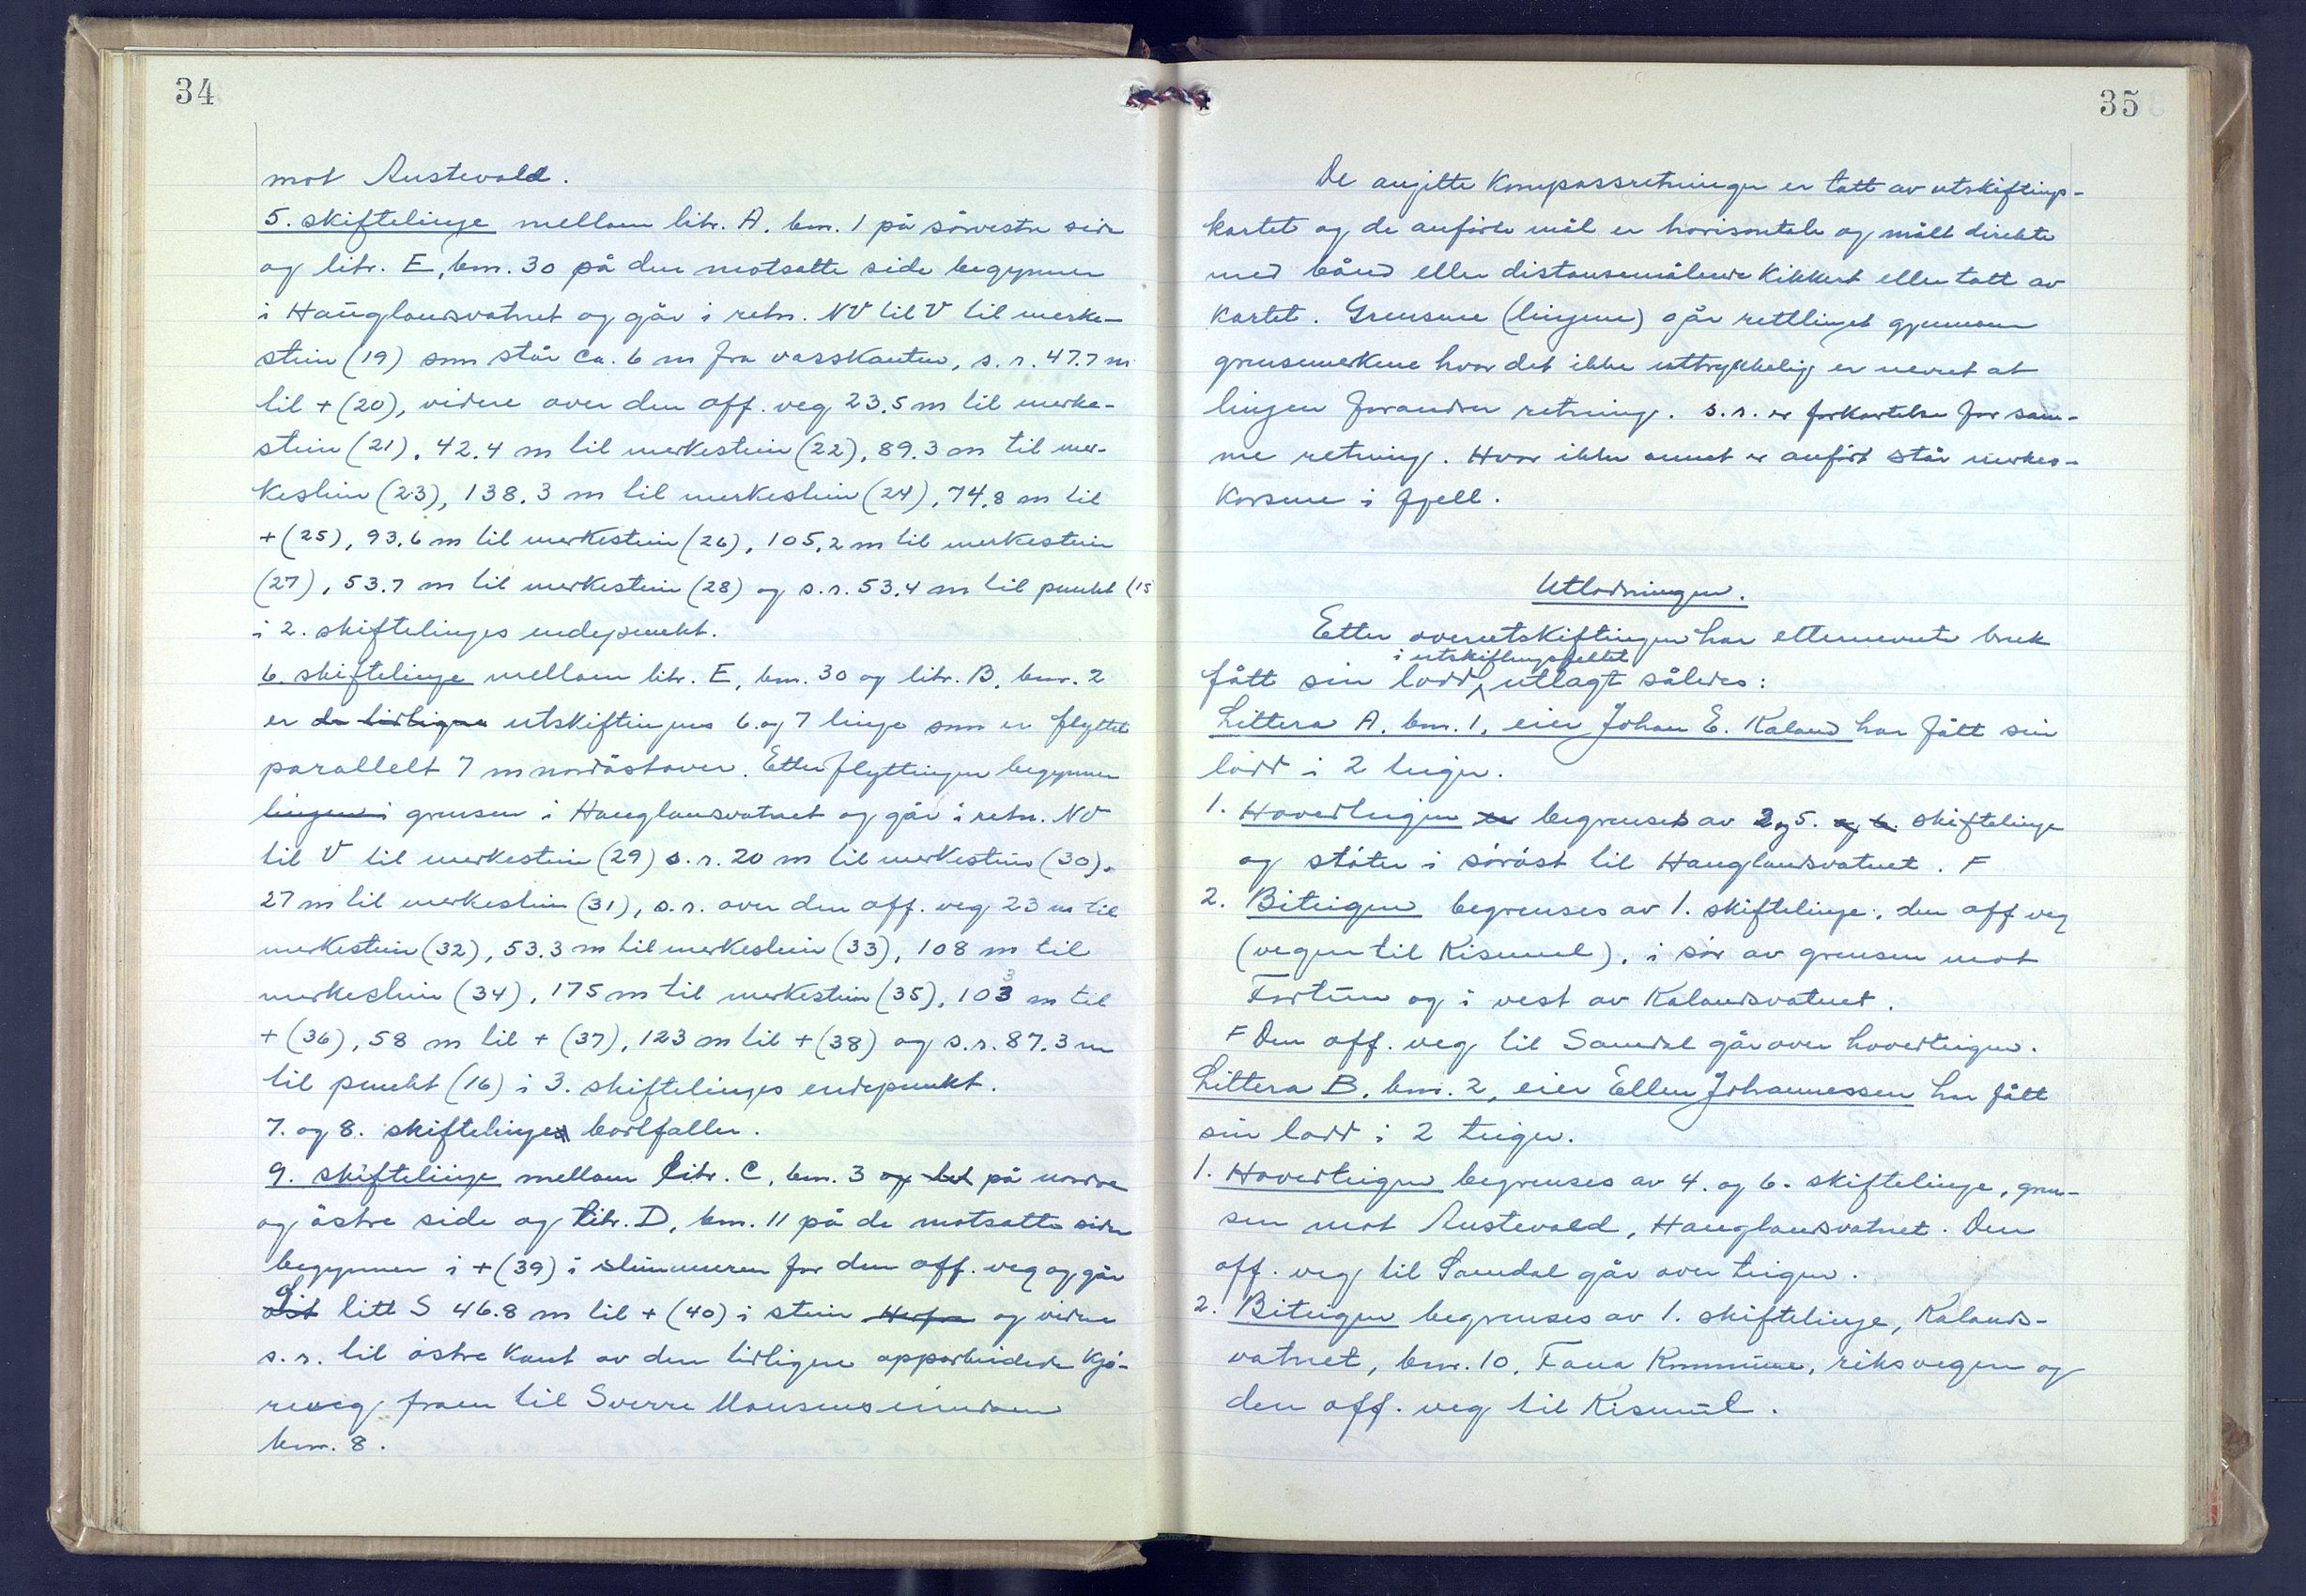 34
mot Austevold.
5. skiftelinje mellom litr. A, bnr. 1 på sørvestre side
og litr. E, bnr. 30 på den motsatte side begynner
i Hauglandsvatnet og går i retn. NV til V til merke-
stein (19) som står ca. 6 m fra vasskanten, s. r. 47.7 m
til + (20), videre over den off. veg 23.5 m til merke-
stein (21), 42.4 m til merkestein (22), 89.3 m til mer-
kestein (23), 138.3 m til merkestein (24), 74.8 m til
+ (25), 93.6 m til merkestein (26), 105.2 m til merkestein
(27), 53.7 m til merkestein (28) og s. r. 53.4 m til punkt (15
i 2. skiftelinjes endepunkt.
6. skiftelinje mellom litr. E, bnr. 30 og litr. B, bnr. 2
er de tidligere utskiftingens 6. og 7 linje som er flyttet
parallelt 7 m nordøstover. Etter flyttingen begynner
linjen i grensen i Hauglandsvatnet og går i retn. NV
til V til merkestein (29) s. r. 20 m til merkestein (30),
27 m til merkestein (31), s. r. over den off. veg 23 m til
merkestein (32), 53.3 m til merkestein (33), 108 m til
merkestein (34), 175 m til merkestein (35), 103 m til
+ (36), 58 m til + (37), 123 m til + (38) og s. r. 87.3 m
til punkt (16) i 3. skiftelinjes endepunkt.
7. og 8. skiftelinje bortfaller.
9. skiftelinje mellom litr. C, bnr. 3 og på nordre
og østre side og litr. D, bnr. 11 på de motsatte sider
begynner i + (39) i steinmuren for den off. veg og går
litt S 46.8 m til + (40) i stein Herfra og videre
s. r. til østre kant av den tidligere opparbeidede kjø-
reveg fram til Sverre Monsens eiendom
bnr. 8.
35
De angitte kompassretninger er tatt av utskiftings-
kartet og de anførte mål er horisontale og målt direkte
med bånd eller distansemålende kikkert eller tatt av
kartet. Grensene (linjene) går rettlinjet gjennom
grensemerkene hvor det ikke uttrykkelig er nevnt at
linjen forandrer retning. s. r. er forkortelse for sam-
me retning. Hvor ikke annet er anført står merkes-
korsene i fjell.
Utlodningen.
Etter overutskiftingen har etternevnte bruk
i utskiftingsfeltet
fått sin lodd utlagt således:
Littera A. bnr. 1, eier Johan E. Kaland har fått sin
lodd i 2 teiger.
1. Hovedteigen er begrenset av 2 og 5. og 6. skiftelinje
og støter i sørøst til Hauglandsvatnet. F
2. Biteigen begrenses av 1. skiftelinje, den off veg
(vegen til Kismul), i sør av grensen mot
Fortun og i vest av Kalandsvatnet.
F Den off. veg til Samdal går over hovedteigen.
Littera B. bnr. 2, eier Ellen Johannessen har fått
sin lodd i 2 teiger.
1. Hovedteigen begrenses av 4. og 6. skiftelinje, gren-
sen mot Austevold, Hauglandsvatnet. Den
off. veg til Samdal går over teigen.
2. Biteigen begrenses av 1. skiftelinje, Kalands-
vatnet, bnr. 10, Fana kommune, riksvegen og
den off. veg til Kismul.